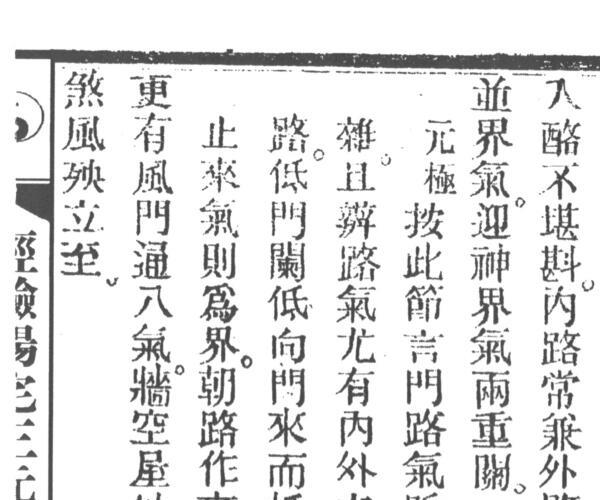 入酪不堪斟。內路常兼外
並界氣。迎神界氣兩重關。
元極按此節言門路氣
雜。且辨路氣尤有內外
路。低門闌低向門來而
止來氣則爲界。朝路作
更有風門通八氣。牆空屋
煞風殃立至。
經驗陽宅三元